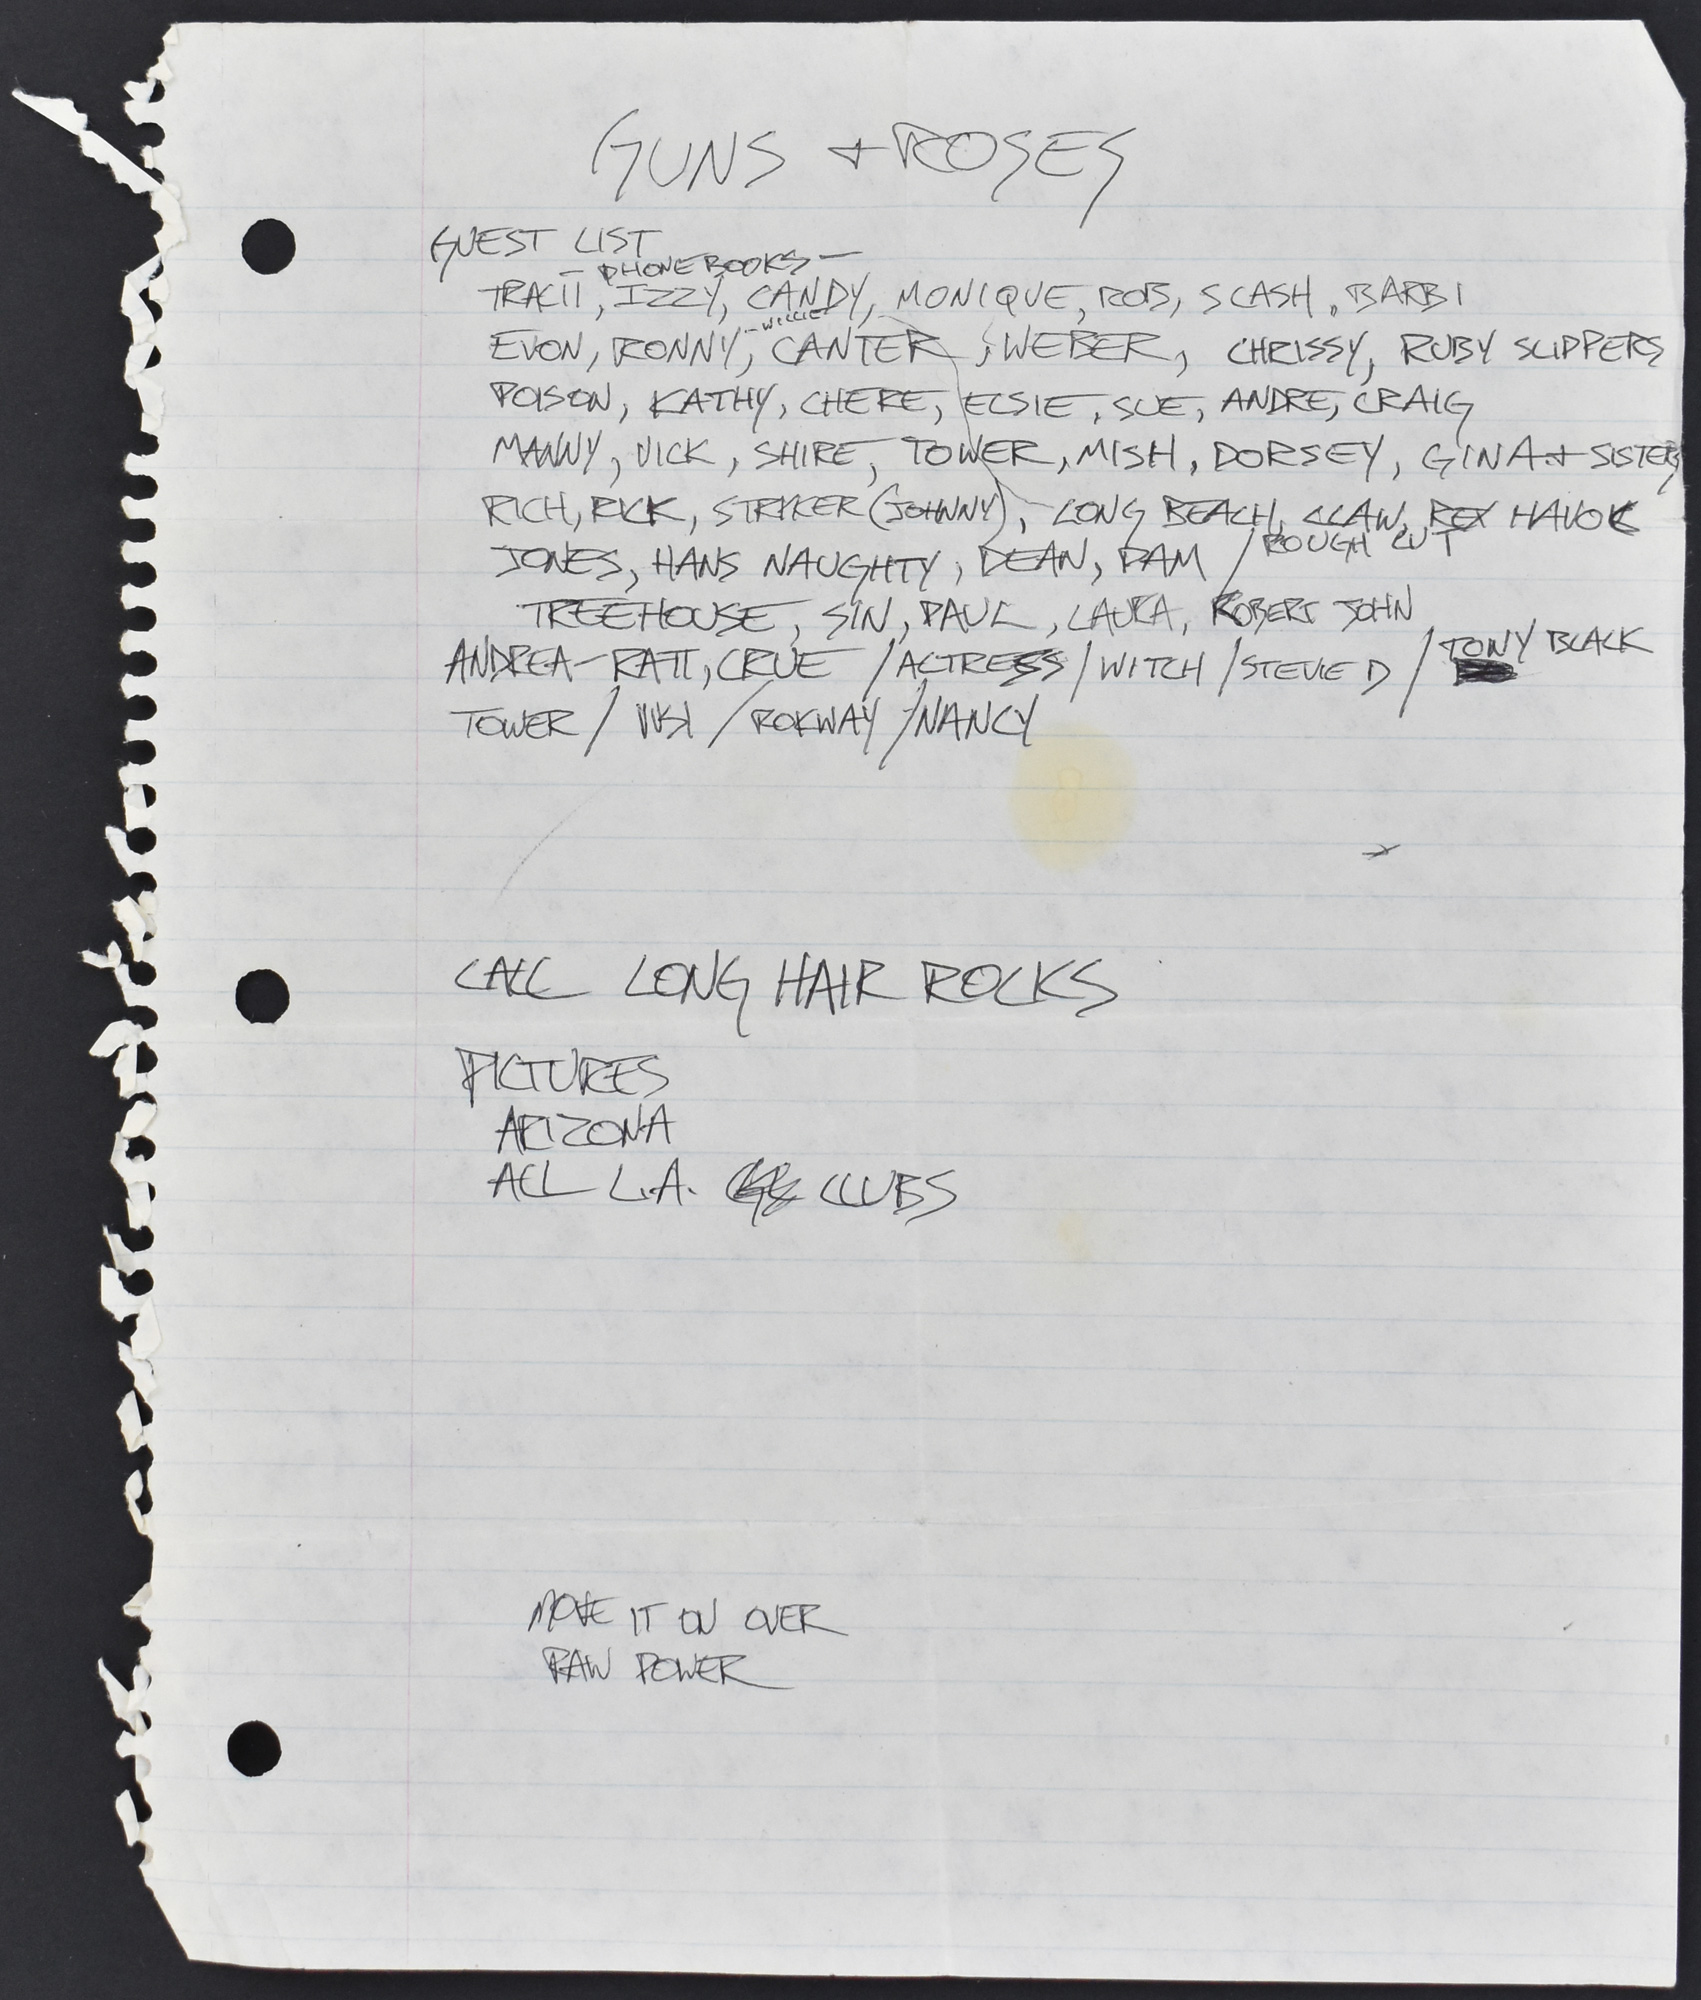 GUNS + ROSES
GUEST LIST
- PHONEBOOKS -
TRACII, IZZY, CANDY, MONIQUE, ROB, SLASH, BARBI
- WILLIE
EVON, RONNY, CANTER, WEBER, CHRISSY, RUBY SLIPPERS
POISON, KATHY, CHERE, ELSIE, SUE, ANDRE, CRAIG
MANNY, VICK, SHIRE, TOWER, MISH, DORSEY, GINA + SISTERS
RICH, RICK, STRYKER (JOHNNY), LONG BEACH, CLAW, REX HAVOK
JONES, HANS NAUGHTY, DEAN, PAM / ROUGH CUT
TREEHOUSE, SIN, PAUL, LAURA, ROBERT JOHN
ANDREA - RATT, CRUE / ACTRESS / WITCH / STEVIE D / TONY BLACK
TOWER / / ROKWAY / NANCY
CALL LONG HAIR ROCKS
PICTURES
ARIZONA
ALL L.A. CLUBS
MOVE IT ON OVER
RAW POWER